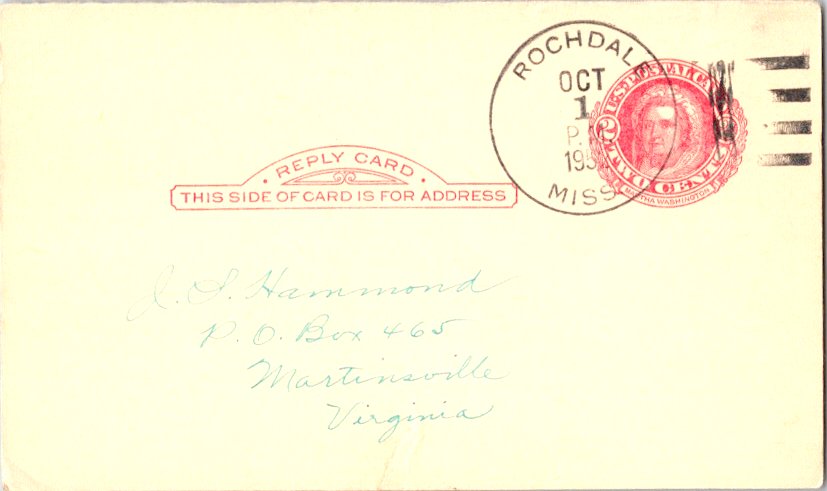 ROCHDALE
OCT
1
P.
195
MISS
U.S. POSTAL CARD
2 TWO CENTS 2
MARTHA WASHINGTON
· REPLY CARD ·
THIS SIDE OF CARD IS FOR ADDRESS
J. S. Hammond
P. O. Box 465
Martinsville
Virginia